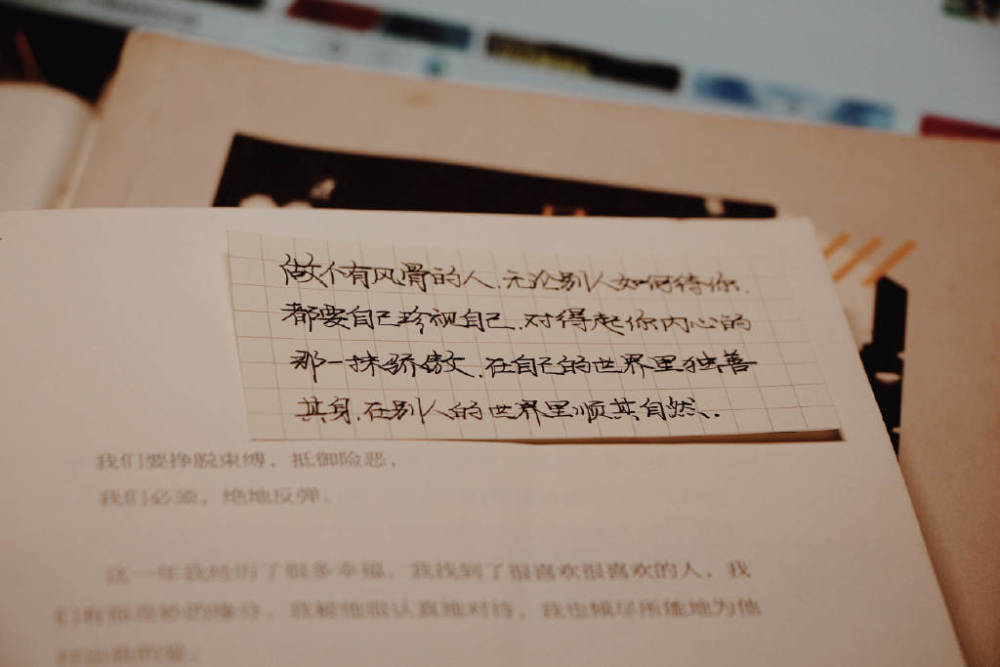 做个有风骨的人.无论别人如何待你.
都要自己珍视自己.对得起你内心的
那一抹骄傲.在自己的世界里独善
其身.在别人的世界里顺其自然..
我们要挣脱束缚，抵御险恶，
我们必须，绝地反弹。
这一年我经历了很多幸福，我找到了很喜欢很喜欢的人，我
们有很奇妙的缘分，我被他很认真地对待，我也倾尽所能地为他